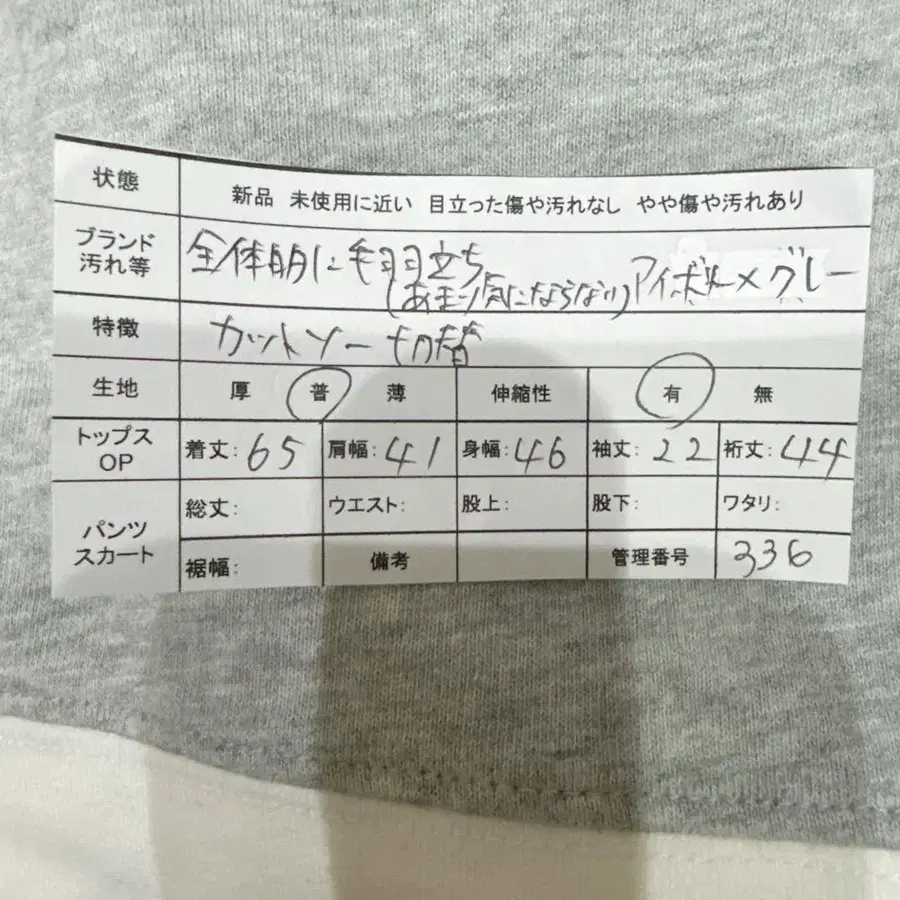 状態 新品 未使用に近い 目立った傷や汚れなし やや傷や汚れあり
ブランド 汚れ等 全体的に毛羽立ち アイボリー×グレー
(あまり気にならない)
特徴 カットソー 切替
生地 厚 普 薄 伸縮性 有 無
トップス OP 着丈:65 肩幅:41 身幅:46 袖丈:22 裄丈:44
パンツ スカート 総丈: ウエスト: 股上: 股下: ワタリ:
裾幅: 備考 管理番号 336